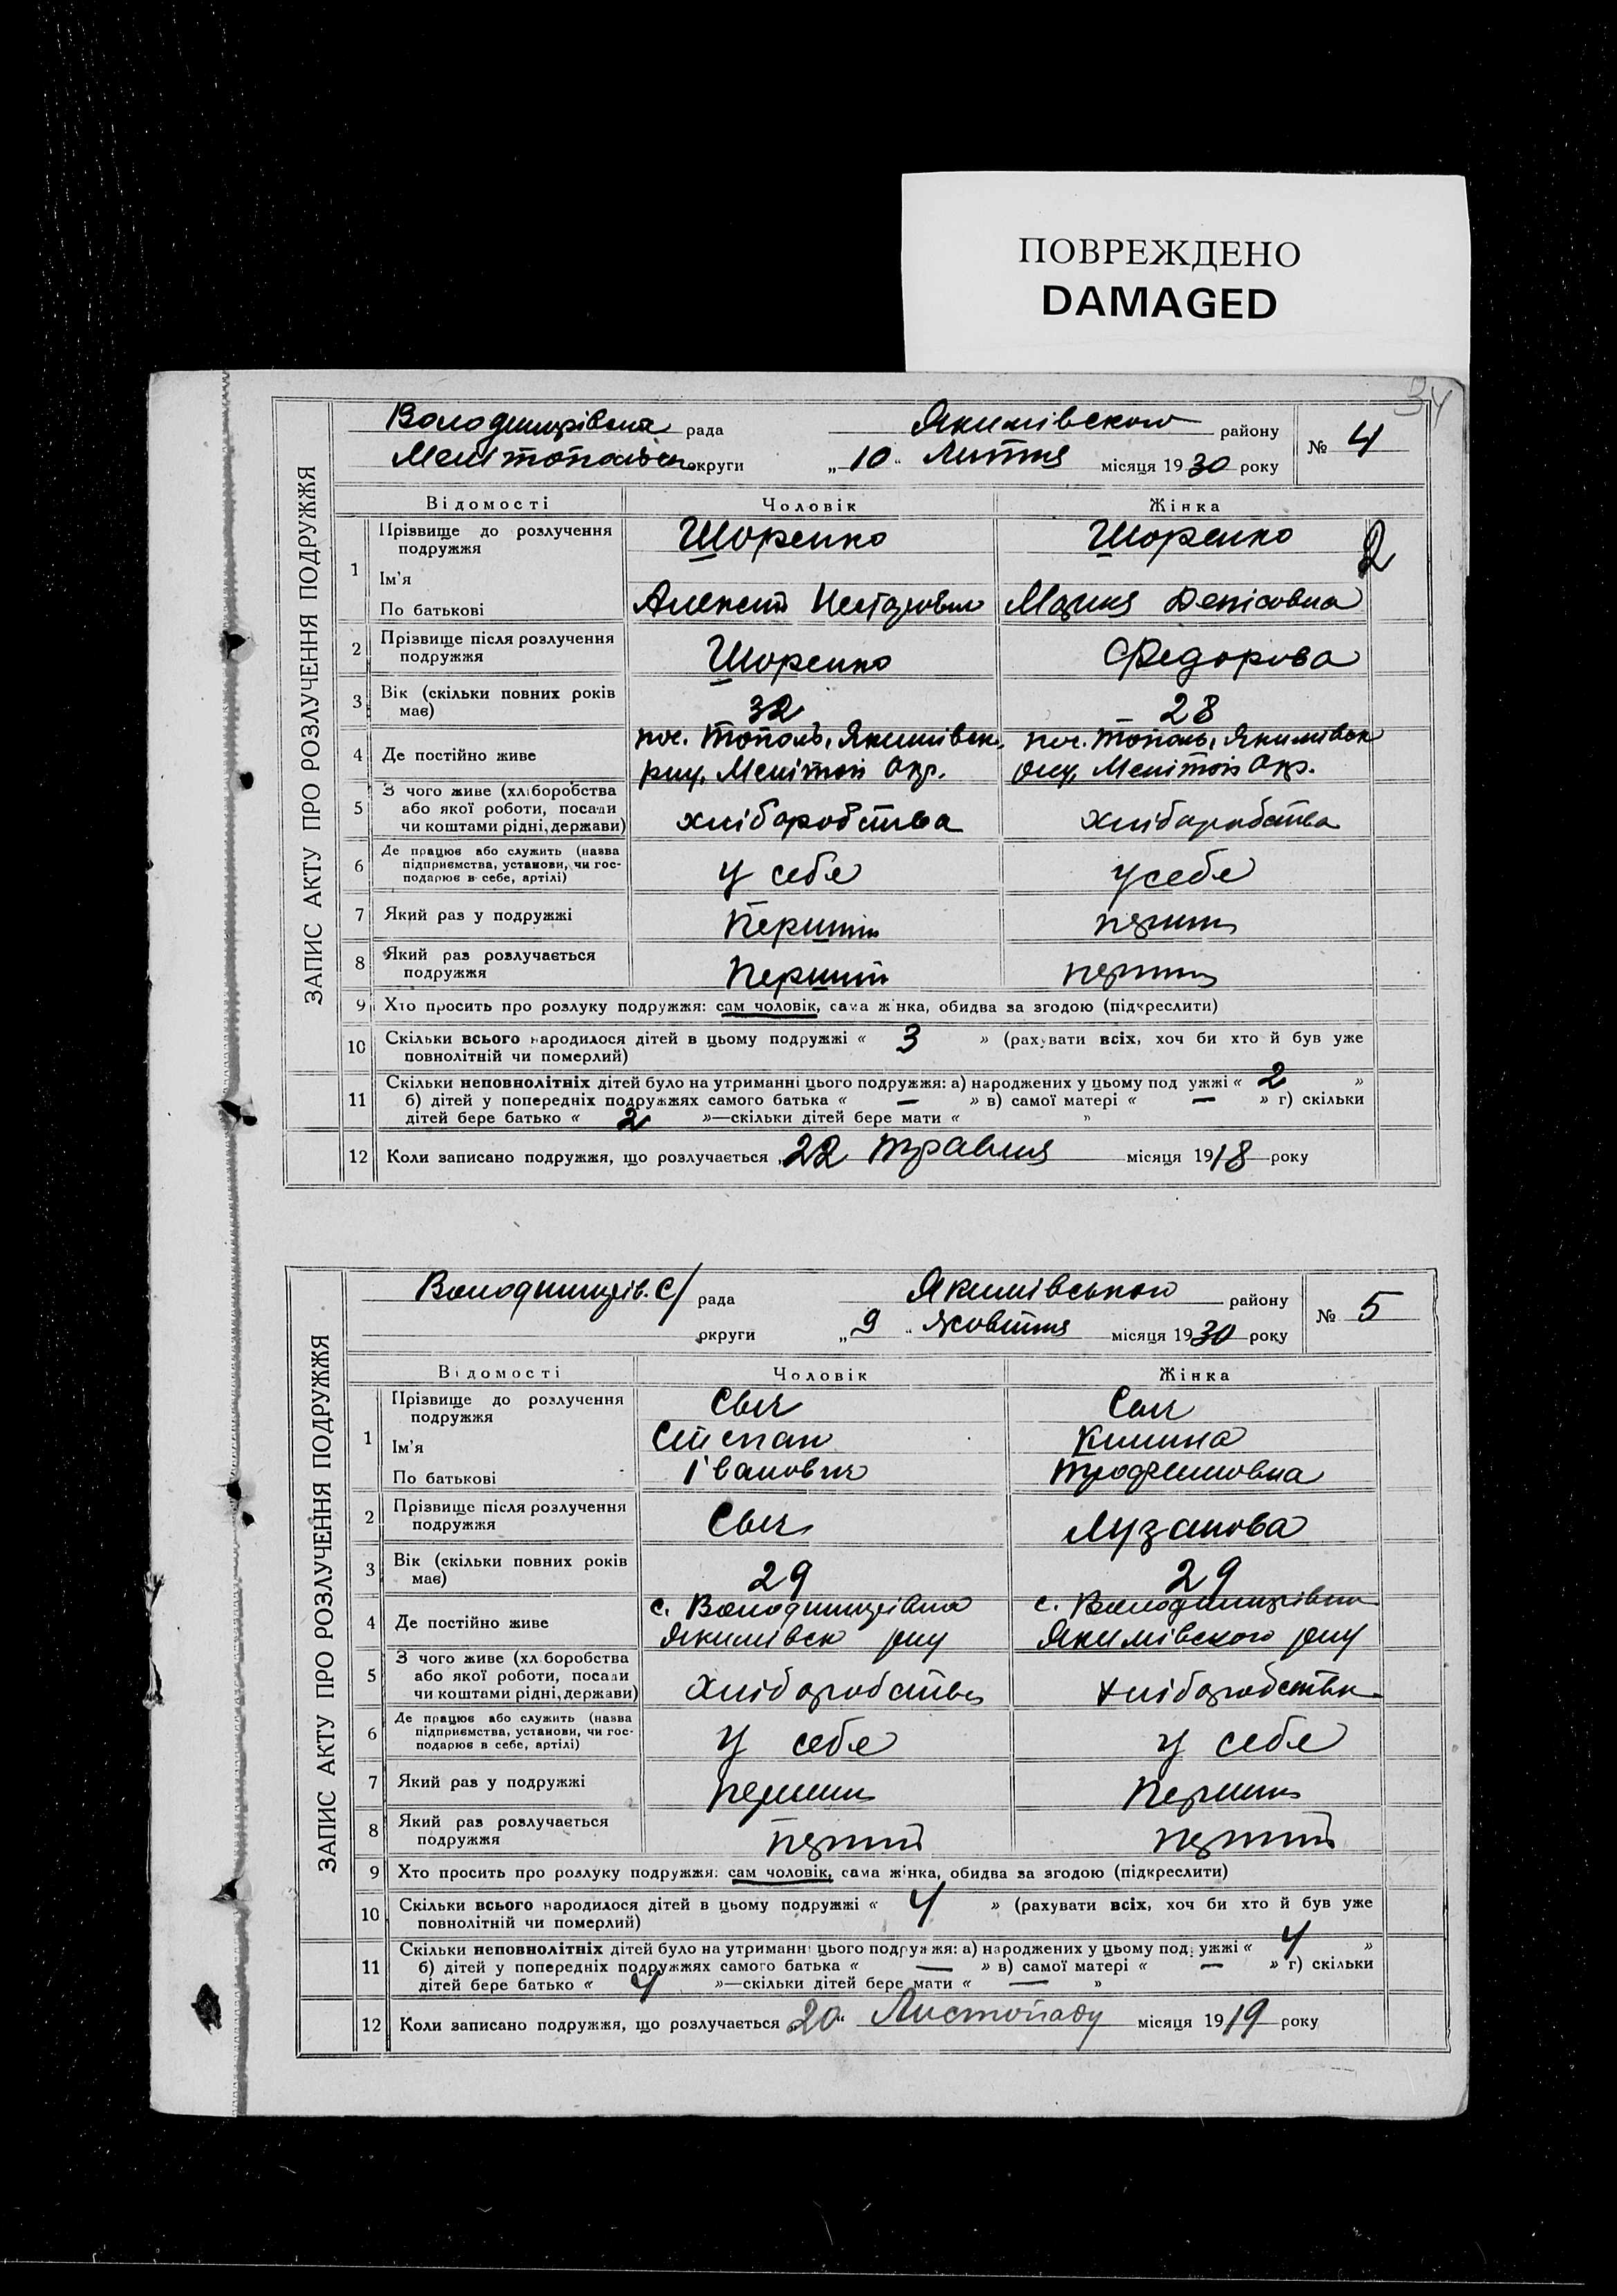 ПОВРЕЖДЕНО
DAMAGED
34
ЗАПИС АКТУ ПРО РОЗЛУЧЕННЯ ПОДРУЖЖЯ
Володимирівська рада Якимівского району № 4
Мелітопольск округи „10“ Лютня місяця 1930 року
Відомості Чоловік Жінка
1 Прізвище до розлучення подружжя Шоренко Шоренко 2
Ім'я
По батькові Алексій Несторович Мария Денісовна
2 Прізвище після розлучення подружжя Шоренко Федорова
3 Вік (скільки повних років має) 32 28
4 Де постійно живе пос. Тополь, Якимівськ. пос. Тополь, Якимівск
рну, Мелітоп Окр. рну, Мелітоп Окр.
5 З чого живе (хліборобства або якої роботи, посади чи коштами рідні, держави) хліборобства хліборобства
6 Де працює або служить (назва підприємства, установи, чи господарює в себе, артілі) у себе у себе
7 Який раз у подружжі Перший перший
8 Який раз розлучається подружжя Перший перший
9 Хто просить про розлуку подружжя: сам чоловік, сама жінка, обидва за згодою (підкреслити)
10 Скільки всього народилося дітей в цьому подружжі « 3 » (рахувати всіх, хоч би хто й був уже
повнолітній чи померлий)
11 Скільки неповнолітніх дітей було на утриманні цього подружжя: а) народжених у цьому подружжі « 2 »
б) дітей у попередніх подружжях самого батька « — » в) самої матері « — » г) скільки
дітей бере батько « 2 »—скільки дітей бере мати « »
12 Коли записано подружжя, що розлучається „22 травня місяця 1918 року
ЗАПИС АКТУ ПРО РОЗЛУЧЕННЯ ПОДРУЖЖЯ
Володимирів. С/ рада Якимівського району № 5
округи „9“ Жовтня місяця 1930 року
Відомості Чоловік Жінка
1 Прізвище до розлучення подружжя Сыч Сыч
Ім'я Степан Килина
По батькові Іванович Трофимовна
2 Прізвище після розлучення подружжя Сыч Лузанова
3 Вік (скільки повних років має) 29 29
4 Де постійно живе с. Володимирівка с. Володимирівка
Якимівск рну Якимівского рну
5 З чого живе (хліборобства або якої роботи, посади чи коштами рідні, держави) Хліборобства Хліборобства
6 Де працює або служить (назва підприємства, установи, чи господарює в себе, артілі) у себе у себе
7 Який раз у подружжі перший Перший
8 Який раз розлучається подружжя перший перший
9 Хто просить про розлуку подружжя: сам чоловік, сама жінка, обидва за згодою (підкреслити)
10 Скільки всього народилося дітей в цьому подружжі « 4 » (рахувати всіх, хоч би хто й був уже
повнолітній чи померлий)
11 Скільки неповнолітніх дітей було на утриманні цього подружжя: а) народжених у цьому подружжі « 4 »
б) дітей у попередніх подружжях самого батька « — » в) самої матері « — » г) скільки
дітей бере батько « 4 »—скільки дітей бере мати « — »
12 Коли записано подружжя, що розлучається „20“ Листопаду місяця 1919 року